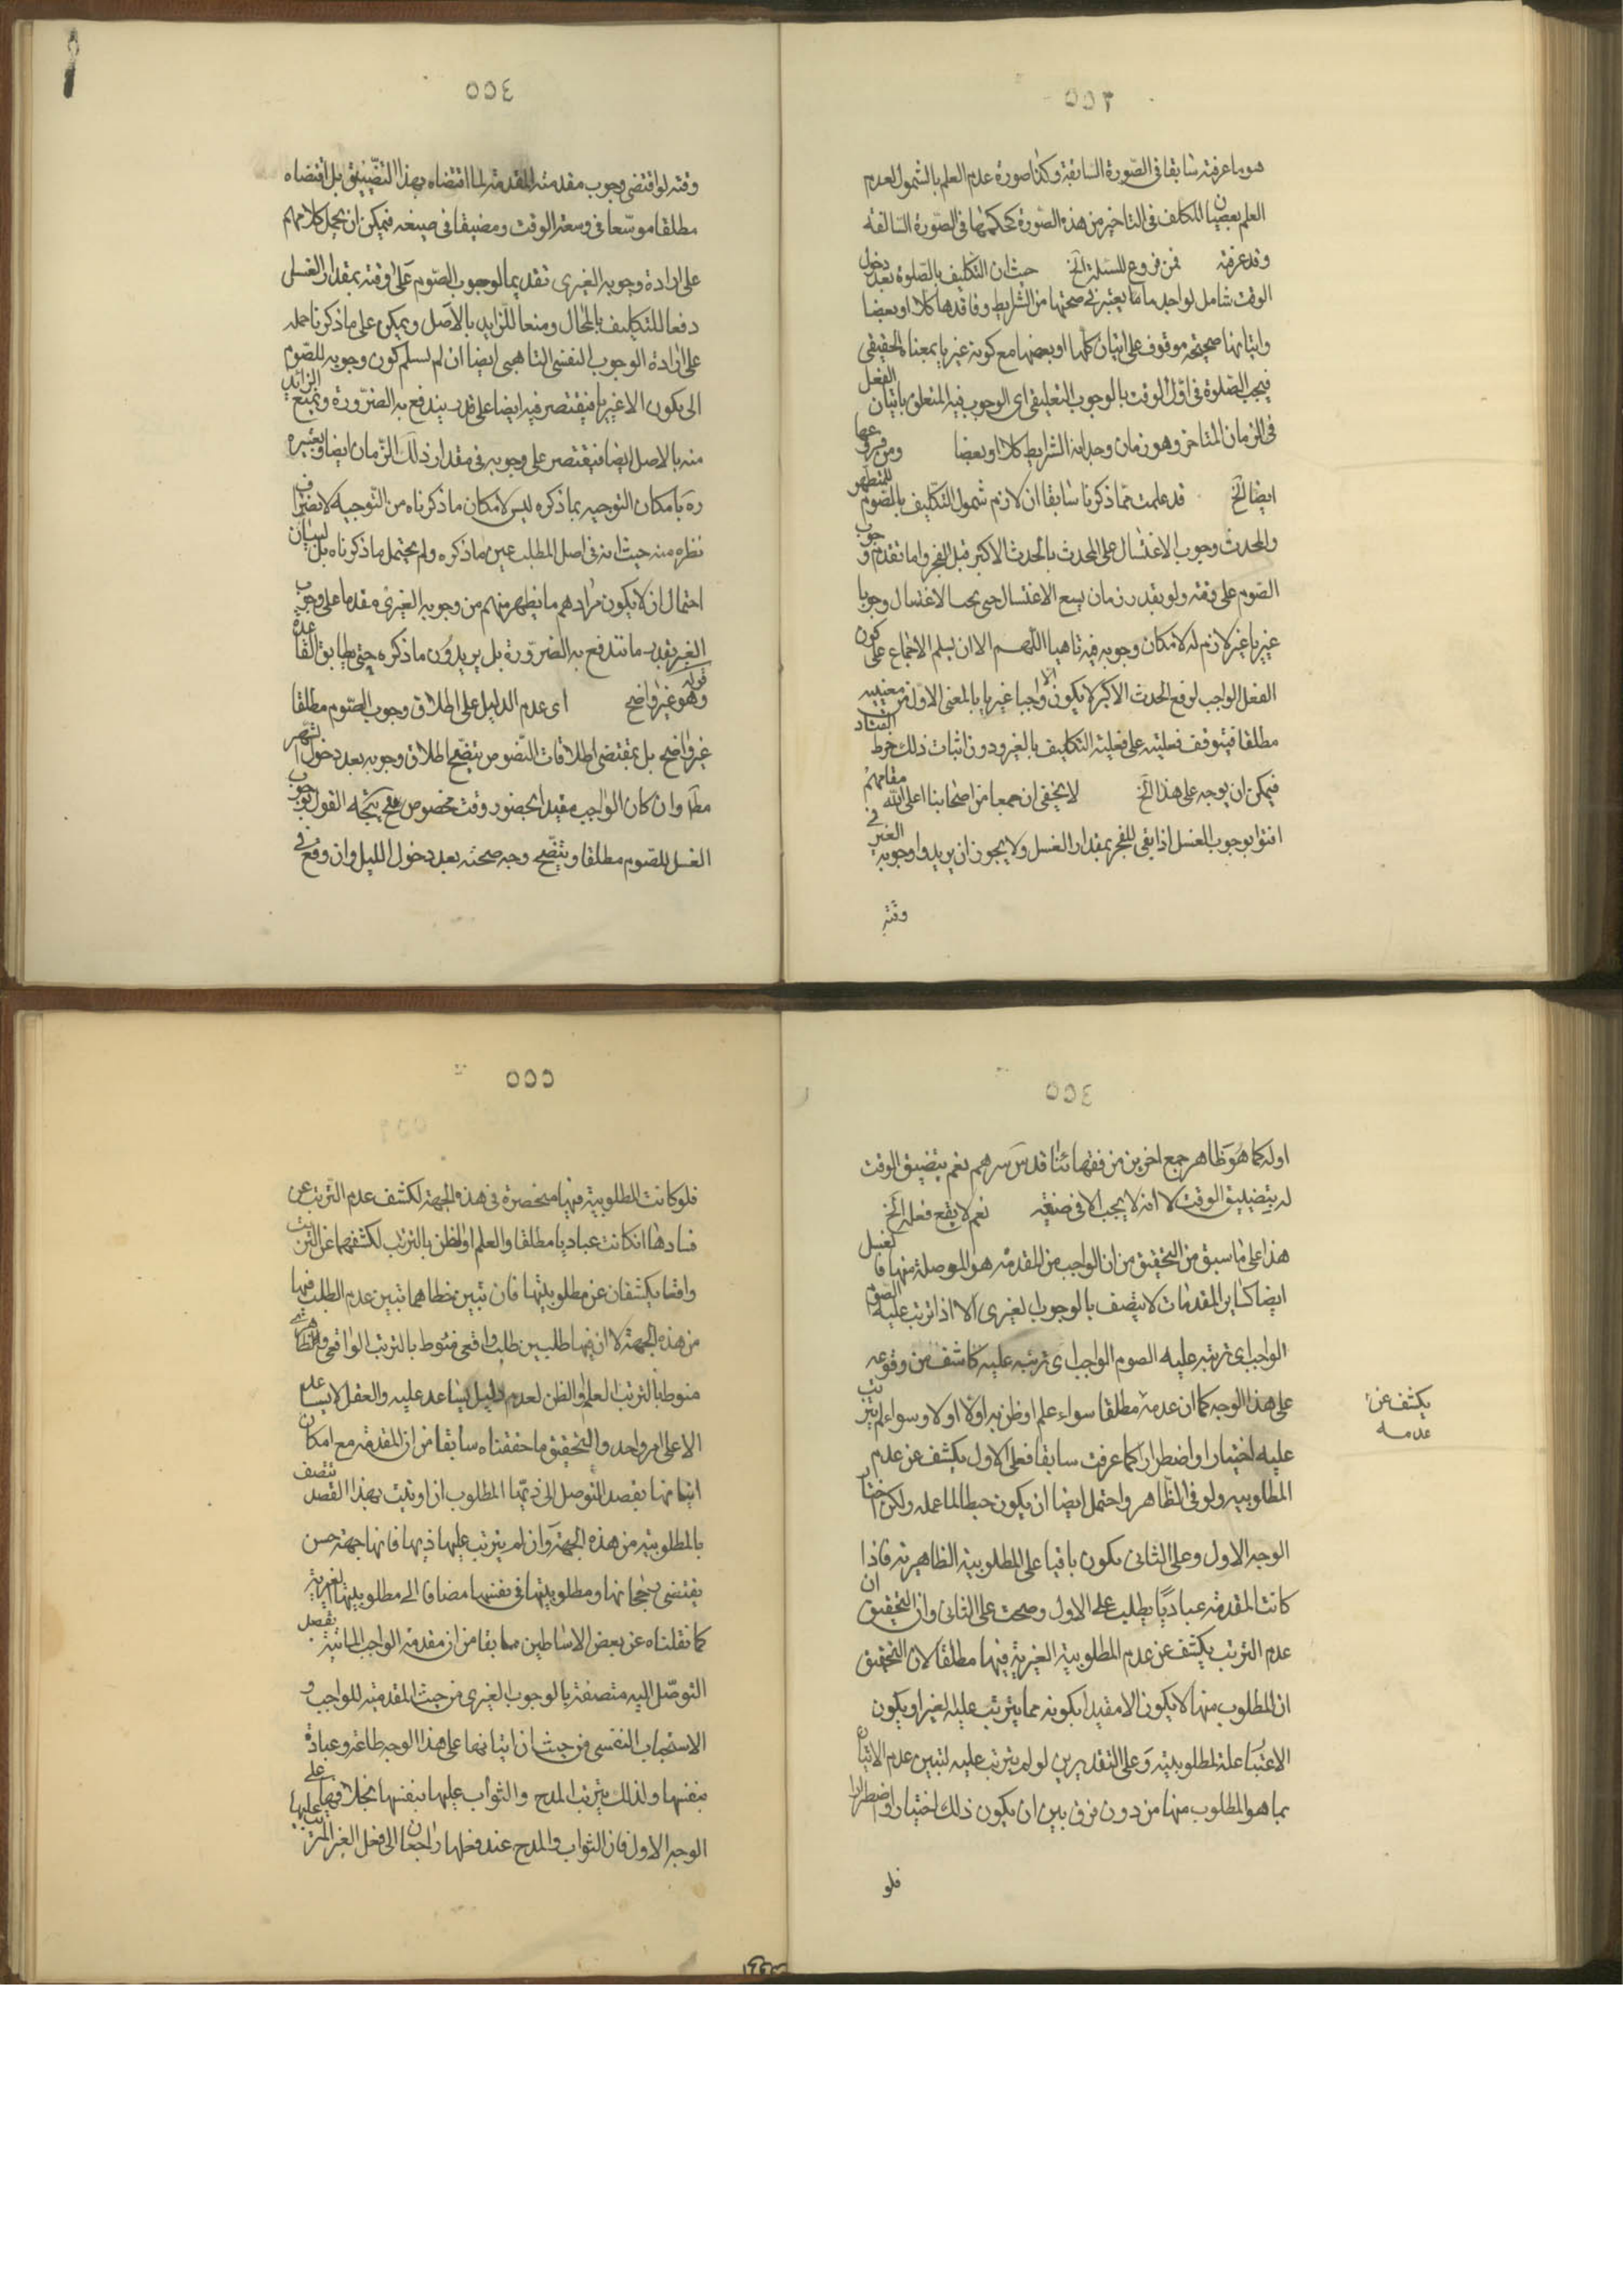 ٥٥٣
هو ما عرفته سابقا فى الصّورة السّابقة وكذا صورة عدم العلم بالشمول لعدم
العلم بعصيان المكلف فى التاخير من هذه الصّورة كحكمها فى الصّورة السّالفة
وقد عرفته فمن فروع المسئلة الخ حيث ان التكليف بالصّلوة بعد دخول
الوقت شامل لواجد ما يعتبر فى صحتها من الشرايط وفاقدها كلا او بعضا
واتيانها صحيحه موقوف على اتيان كلها او بعضها مع كونه غيريا بمعناه الحقيقى
فيجب الصّلوة فى اوّل الوقت بالوجوب التعليقى اى الوجوب فيه المتعلق باتيان الفعل
فى الزمان المتاخر وهو زمان وجدانه الشرايط كلا او بعضا ومن فروعها
ايضا الخ قد علمت ممّا ذكرنا سابقا ان لازم شمول التكليف بالصّوم للمتطهر
والمحدث وجوب الاغتسال على المحدث بالحدث الاكبر قبل الفجر واما تقدم وجوب
الصّوم على وقته ولو بقدر زمان يسع الاغتسال حتى يجب الاغتسال وجوبا
غيريا غير لازم له لامكان وجوبه فيه تاهبيا اللهم الا ان يسلم الاجماع على كون
الفعل الواجب لرفع الحدث الاكبر لا يكون الا واجبا غيريا بالمعنى الاوّل من معنييه
مطلقا فيتوقف فعليته على فعلية التكليف بالغير ودون اثبات ذلك خرط القتاد
فيمكن ان يوجه على هذا الخ لا يخفى ان جمعا من اصحابنا اعلى الله مقامهم
افتوا بوجوب الغسل اذا بقى للفجر بمقدار الغسل ولا يجوز ان يريدوا وجوبه الغيرى فى
وقته
٥٥٤
وقته لو اقتضى وجوب مقدمته المقدمة لما اقتضاه بهذا التضييق بل اقتضاه
مطلقا موسّعا فى وسعة الوقت ومضيقا فى ضيقه فيمكن ان يحمل كلامهم
على ارادة وجوبه الغيرى تقديما لوجوب الصّوم على وقته بمقدار الغسل
دفعا للتكليف بالمحال ومنعا للزايد بالاصل ويمكن على ما ذكرنا حمله
على ارادة الوجوب النفسى التاهبى ايضا ان لم نسلم كون وجوبه للصّوم
الى يكون الا غيريا فيقتصر فيه ايضا على قدر يندفع به الضرّورة ونمنع الزائد
منه بالاصل ايضا فيقتصر على وجوبه فى مقدار ذلك الزّمان ايضا وتعبيره
ره بامكان التوجيه بما ذكره ليس لامكان ما ذكرناه من التّوجيه لانصراف
نظره منه حيث انه فى اصل المطلب عين ما ذكره ولم يحتمل ما ذكرناه بل لبيان
احتمال ان لا يكون مرادهم ما يظهر منهم من وجوبه الغيرى مقدما على وجوب
الغير بقدر ما تندفع به الضرّورة بل يريدون ما ذكره حتى يطابق القاعدة
قوله وهو غير واضح اى عدم الدليل على اطلاق وجوب الصّوم مطلقا
غير واضح بل بمقتضى اطلاقات النّصوص يتضح اطلاق وجوبه بعد دخول الشهر
مطلقا وان كان الواجب مقيدا بحضور وقت مخصوص فح يتجه القول بوجوب
الغسل للصّوم مطلقا ويتضح وجه صحته بعد دخول الليل وان وقع فى
٥٥٤
اوله كما هو ظاهر جمع اخرين من فقهائنا قدس سرهم نعم بتضيق الوقت
له يتضيق الوقت لا انه لا يجب الا فى ضيقه نعم لا يقع فعله الخ
هذا على ما سبق من التحقيق من ان الواجب من المقدمة هو الموصلة منها فالغسل
ايضا كساير المقدمات لا يتصف بالوجوب الغيرى الا اذا ترتب عليه الصّوم
الواجب اى ترتبه عليه الصوم الواجب اى ترتبه عليه كاشف من وقوعه
على هذا الوجه كما ان عدمه مطلقا سواء علم او ظن به اولا اولا وسواء لم يترتب
يكشف عن
عدمه
عليه اختيارا او اضطرارا كما عرفت سابقا فعلى الاول يكشف عن عدم
المطلوبيه ولو فى الظّاهر واحتمل ايضا ان يكون حبطا لما عمله ولكن اختار
الوجه الاول وعلى الثانى يكون باقيا على المطلوبية الظاهرية فاذا
كانت المقدمة عباديّا بطلت على الاول وصحت على الثانى وان التحقيق ان
عدم الترتب يكشف عن عدم المطلوبية الغيرية فيها مطلقا لان التحقيق
ان المطلوب منها لا يكون الا مقيدا بكونه مما يترتب عليه الغير او يكون
الاعتبار علة لمطلوبيته وعلى التقديرين لو لم يترتب عليه لتبين عدم الاتيان
بما هو المطلوب منها من دون فرق بين ان يكون ذلك اختيارا واضطرارا
فلو
٥٥٥
فلو كانت المطلوبية فيها منحصرة فى هذه الجهة لكشف عدم الترتب عن
فسادها ان كانت عباديا مطلقا والعلم او الظن بالترتب لكشفهما عن الترتب
واقعا يكشفان عن مطلوبيتها فان تبين خطاهما تبين عدم الطلب فيها
من هذه الجهة لا ان فيها طلبين طلب واقعى منوط بالترتب الواقعى وظاهرى
منوط بالترتب العلم او الظن لعدم دليل يساعد عليه والعقل لا يساعد
الا على امر واحد والتحقيق ما حققناه سابقا من ان المقدمة مع امكان
اتيانها بقصد التوصل الى ذيها المطلوب ان اوتيت بهذا القصد تتصف
بالمطلوبية من هذه الجهة وان لم يترتب عليها ذيها فانها جهة حسن
يقتضى رجحانها ومطلوبيتها فى نفسها مضافا الى مطلوبيتها الغيرية
كما نقلناه عن بعض الاساطين سابقا من ان مقدمة الواجب الماتية بقصد
التوصّل اليه متصفة بالوجوب الغيرى من حيث المقدمية للواجب و
الاستحباب النفسى من حيث ان اتيانها على هذا الوجه طاعة وعبادة
بنفسها ولذلك يترتب المدح والثواب عليها بنفسها بخلافها على
الوجه الاول فان الثواب والمدح عند فعلها راجعان الى فعل الغير المترتب عليها